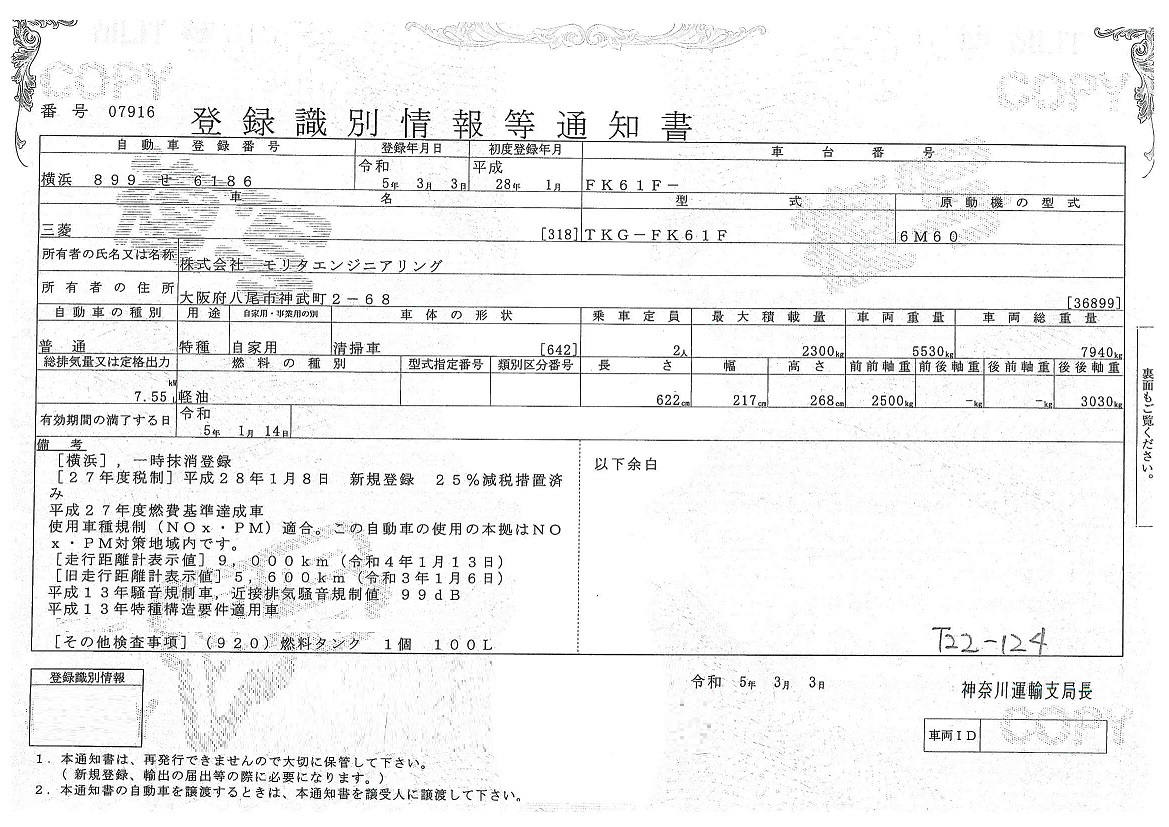 COPY
COPY
番号 07916 登録識別情報等通知書
自動車登録番号 登録年月日 初度登録年月 車台番号
横浜 899 せ 6186 令和 5年 3月 3日 平成 28年 1月 FK61F－
車名 型式 原動機の型式
三菱 [318] TKG－FK61F 6M60
所有者の氏名又は名称 株式会社 モリタエンジニアリング
所有者の住所 大阪府八尾市神武町2－68 [36899]
自動車の種別 用途 自家用・事業用の別 車体の形状 乗車定員 最大積載量 車両重量 車両総重量
普通 特種 自家用 清掃車 [642] 2人 2300kg 5530kg 7940kg
総排気量又は定格出力 燃料の種別 型式指定番号 類別区分番号 長さ 幅 高さ 前前軸重 前後軸重 後前軸重 後後軸重
kW 7.55 L 軽油 622cm 217cm 268cm 2500kg －kg －kg 3030kg
有効期間の満了する日 令和 5年 1月 14日
備考
[横浜]，一時抹消登録
以下余白
[27年度税制] 平成28年1月8日 新規登録 25％減税措置済
み
平成27年度燃費基準達成車
使用車種規制（NOx・PM）適合。この自動車の使用の本拠はNO
x・PM対策地域内です。
[走行距離計表示値] 9，000km（令和4年1月13日）
[旧走行距離計表示値] 5，600km（令和3年1月6日）
平成13年騒音規制車，近接排気騒音規制値 99dB
平成13年特種構造要件適用車
[その他検査事項]（920）燃料タンク 1個 100L
T22-124
裏面もご覧ください。
登録識別情報
令和 5年 3月 3日
神奈川運輸支局長
車両ID
COPY
1．本通知書は、再発行できませんので大切に保管して下さい。
（新規登録、輸出の届出等の際に必要になります。）
2．本通知書の自動車を譲渡するときは、本通知書を譲受人に譲渡して下さい。